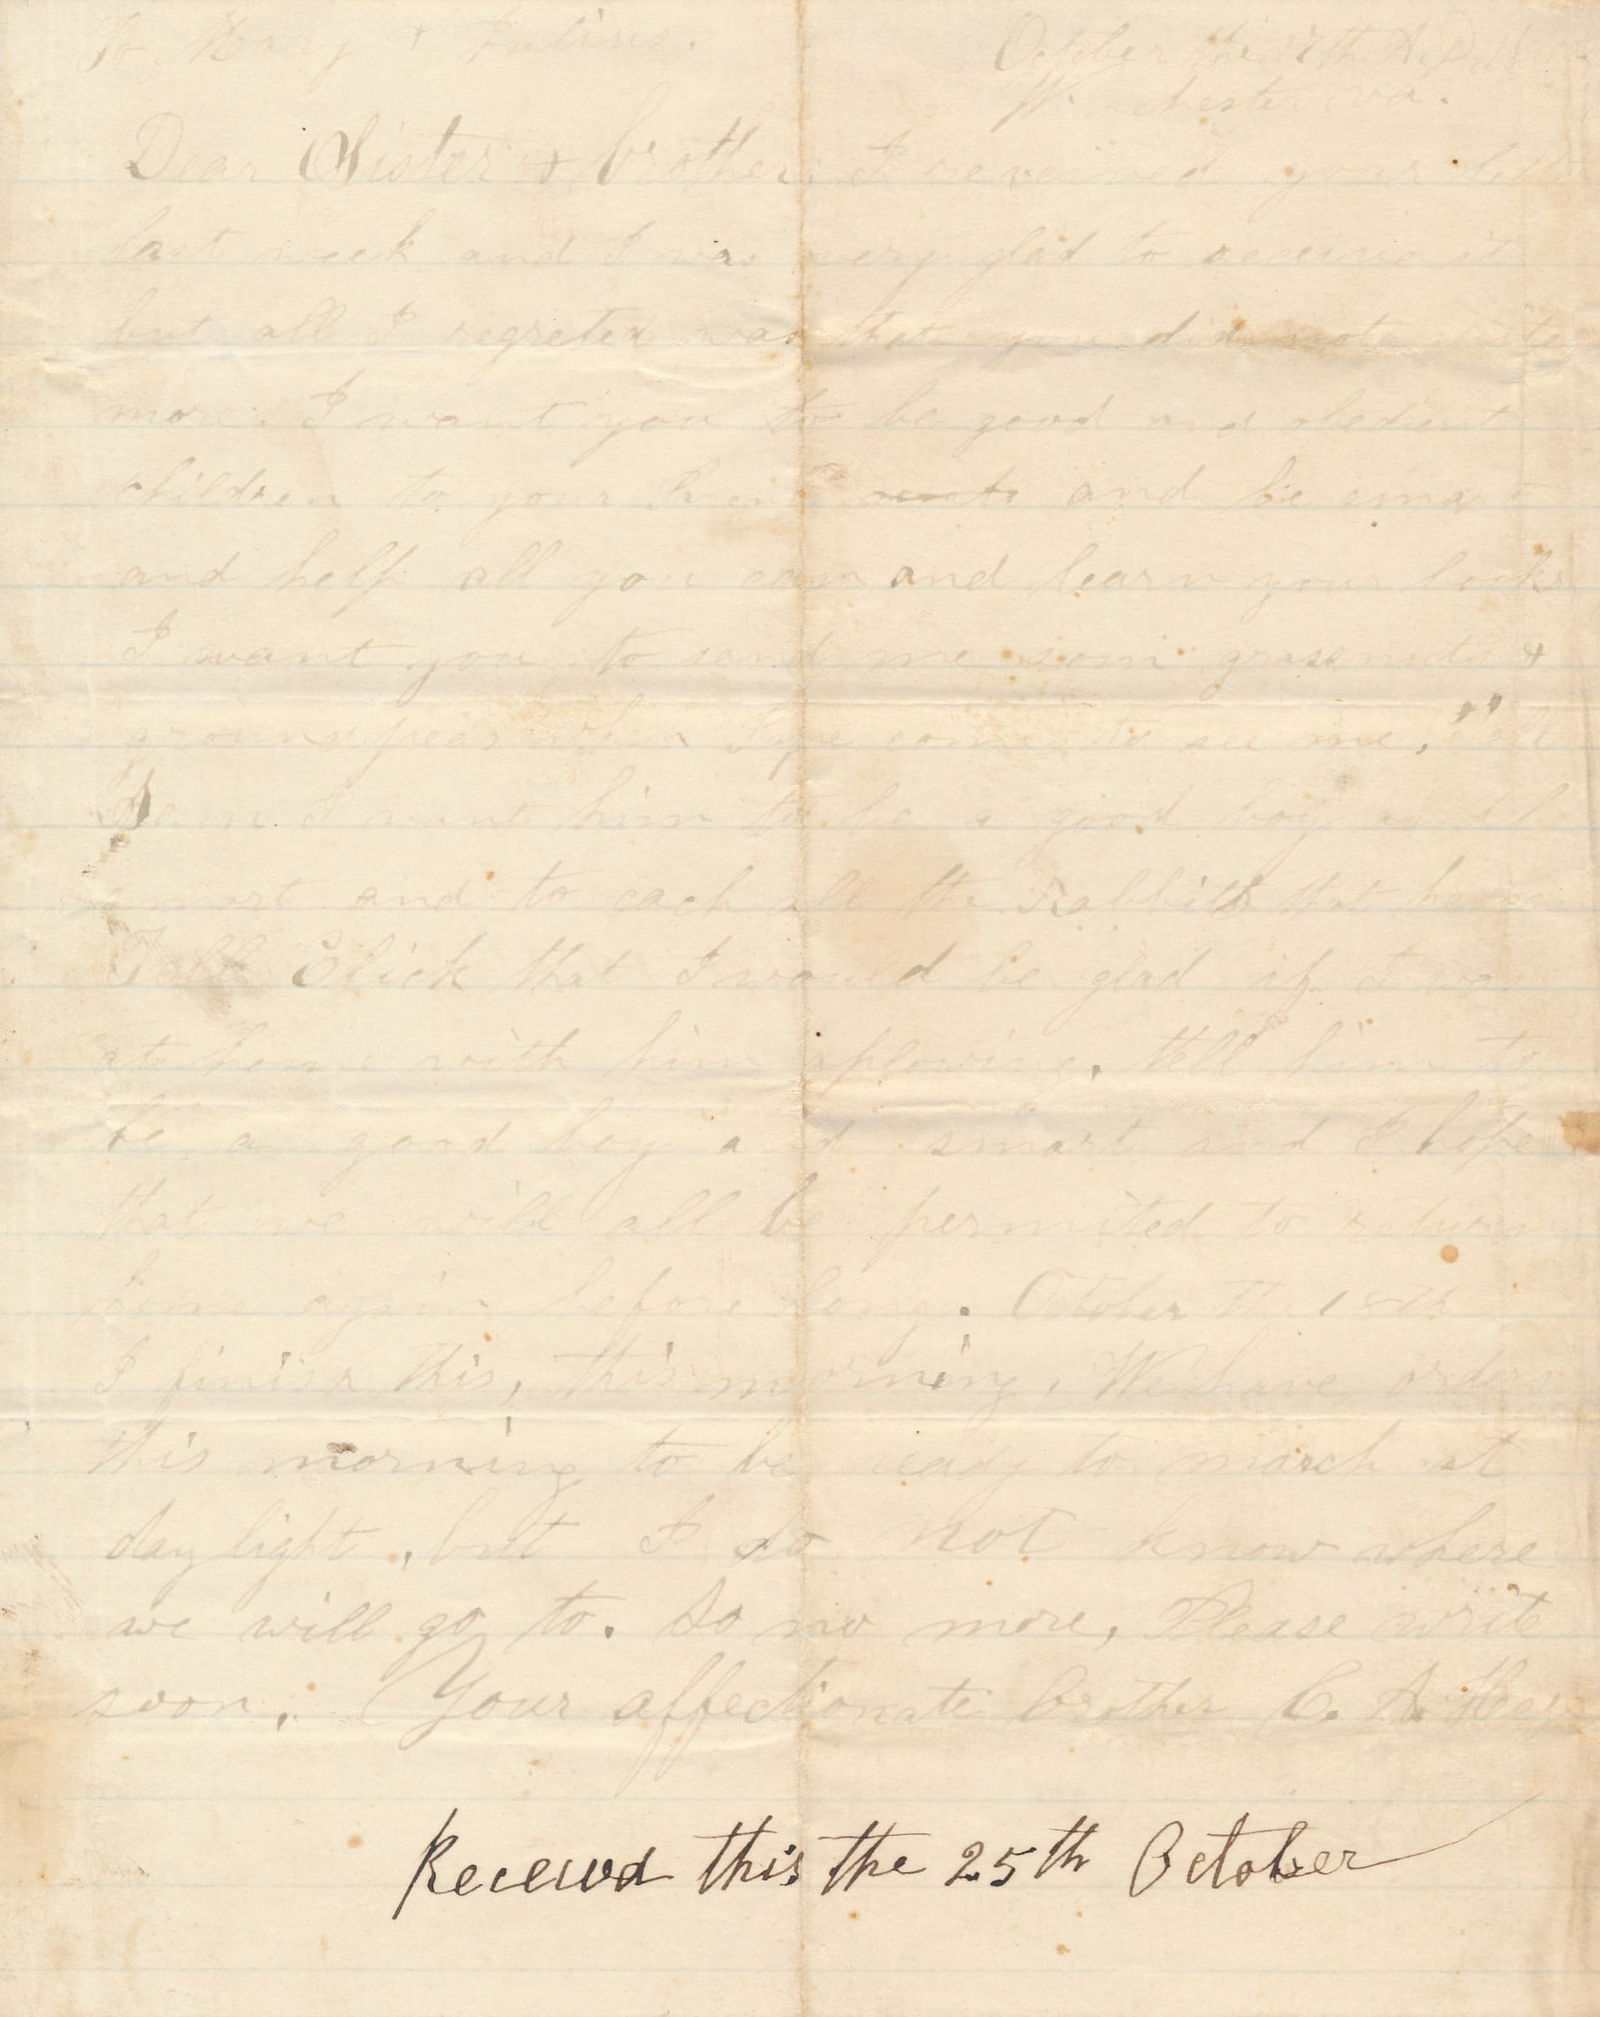 To Mary &
October the 17th A.D.
Winchester va.
Dear Sister & brother I received your
last week and I was very glad to receive it
but all I regreted was that you did note write
more. I want you to be good and obedient
children to your and be smart
and help all you can and learn your books
I want you to send me som grassnuts &
ground peas when comes to see me. Tell
I want him to be a good boy and be
smart and to cach all the Rabbits that
Tell Click that I would be glad if I was
at home with him plowing, tell him to
be a good boy and smart and I hope
that we will all be permited to return
home again before long. October the 18th
I finish this, this morning, We have orders
this morning to be ready to march at
daylight, but I do not know where
we will go to. So no more, Please write
soon. Your affectionate brother C. A.
Received this the 25th October